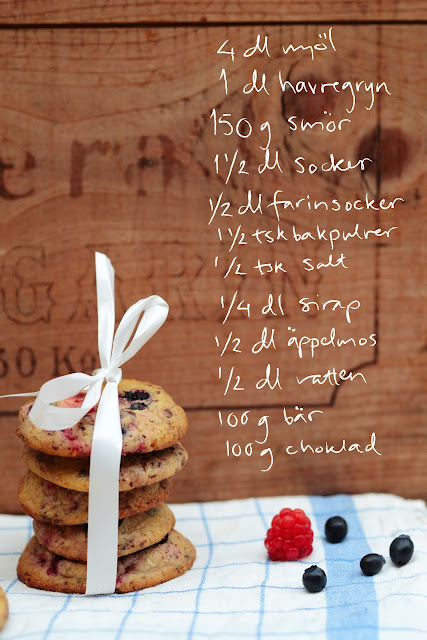 4 dl mjöl
1 dl havregryn
150 g smör
1 1/2 dl socker
1/2 dl farinsocker
1 1/2 tsk bakpulver
1/2 tsk salt
1/4 dl sirap
1/2 dl äppelmos
1/2 dl vatten
100 g bär
100 g choklad
50 Ko